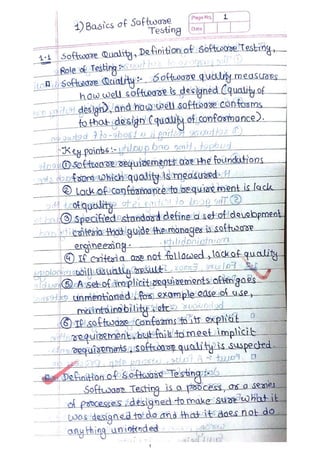 Page No. 1
Date
1) Basics of Software
Testing
1.1 Software Quality, Definition of Software Testing,
Role of Testing :-
Software Quality :- Software quality measures
how well software is designed (quality of
design), and how well software conforms
to that design (quality of conformance).
Key points :-
① Software requirements are the foundations
from which quality is measured.
② Lack of conformance to requirement is lack
of quality
③ Specified standard define a set of development
criteria that guide the manager is software
engineering.
④ If criteria are not followed, lack of quality
will usually result
⑤ A set of implicit requirements often goes
unmentioned, for example ease of use,
maintainability, etc
⑥ If software conforms to its explicit
requirement, but fail to meet implicit
requirements, software quality is suspected.
Definition of Software Testing :-
Software Testing is a process, or a series
of processes, designed to make sure what it
was designed to do and that it does not do
anything unintended
1